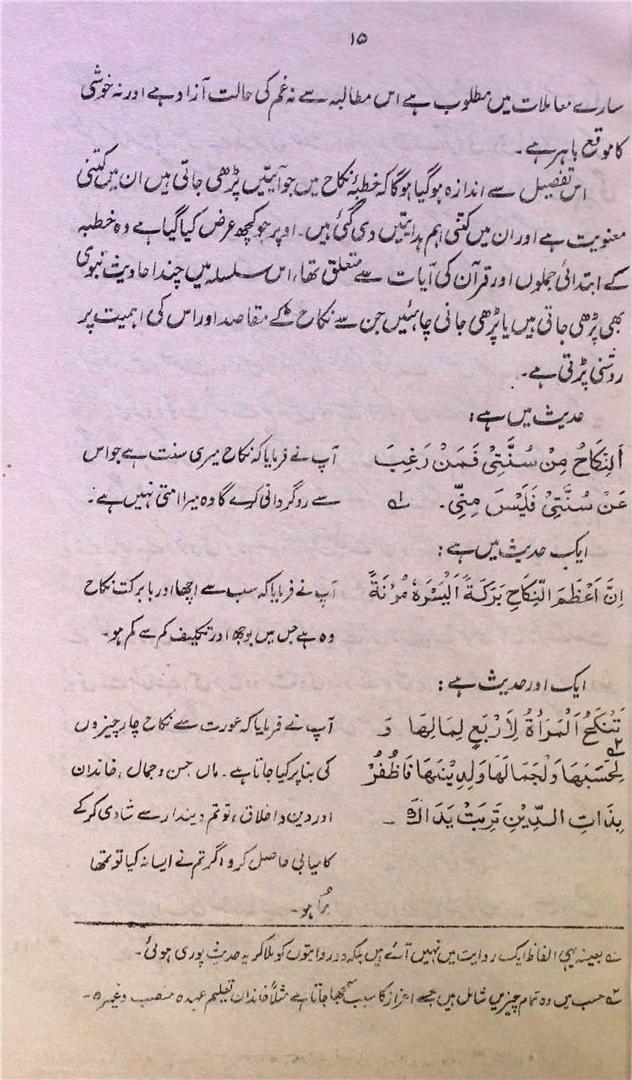 ۱۵
سارے معاملات میں مطلوب ہے اس مطالبہ سے نہ غم کی حالت آزاد ہے اور نہ خوشی
کا موقع باہر ہے۔
اس تفصیل سے اندازہ ہو گیا ہوگا کہ خطبۂ نکاح میں جو آیتیں پڑھی جاتی ہیں ان میں کتنی
معنویت ہے اور ان میں کتنی اہم ہدایتیں دی گئی ہیں۔ اوپر جو کچھ عرض کیا گیا ہے وہ خطبہ
کے ابتدائی جملوں اور قرآن کی آیات سے متعلق تھا، اس سلسلہ میں چند احادیث نبوی
بھی پڑھی جاتی ہیں یا پڑھی جانی چاہئیں جن سے نکاح کے مقاصد اور اس کی اہمیت پر
روشنی پڑتی ہے۔
حدیث میں ہے:
اَلنِّکَاحُ مِنْ سُنَّتِیْ فَمَنْ رَغِبَ
عَنْ سُنَّتِیْ فَلَیْسَ مِنِّی۔ ؎۱
آپ نے فرمایا کہ نکاح میری سنت ہے جو اس
سے روگردانی کرے گا وہ میرا امتی نہیں ہے۔
ایک حدیث میں ہے:
اِنَّ اَعْظَمَ النِّکَاحِ بَرَکَۃً اَلْیَسَرَہٗ مُرْنَۃً
آپ نے فرمایا کہ سب سے اچھا اور بابرکت نکاح
وہ ہے جس میں بوجھ اور تکلیف کم سے کم ہو۔
ایک اور حدیث ہے:
تُنْکَحُ الْمَرْأَۃُ لِاَرْبَعٍ لِمَالِھَا وَ
لِحَسَبِھَا ؎۲ وَلْجَمَالِھَا وَلِدِیْنِھَا فَاظْفُرْ
بِذَاتِ الدِّیْنِ تَرِبَتْ یَدَاکَ۔
آپ نے فرمایا کہ عورت سے نکاح چار چیزوں
کی بنا پر کیا جاتا ہے۔ ماں، حسن و جمال، خاندان
اور دین و اخلاق، تو تم دیندار سے شادی کر کے
کامیابی حاصل کرو، اگر تم نے ایسا نہ کیا تو تمھا
برُا ہو۔
؎۱ بعینہ یہی الفاظ ایک روایت میں نہیں آئے ہیں بلکہ دو روایتوں کو ملا کر یہ حدیث پوری ہوئی۔
؎۲ حسب میں وہ تمام چیزیں شامل ہیں جسے اعزاز کا سبب سمجھا جاتا ہے مثلاً خاندان تعلیم عہدہ منصب وغیرہ۔